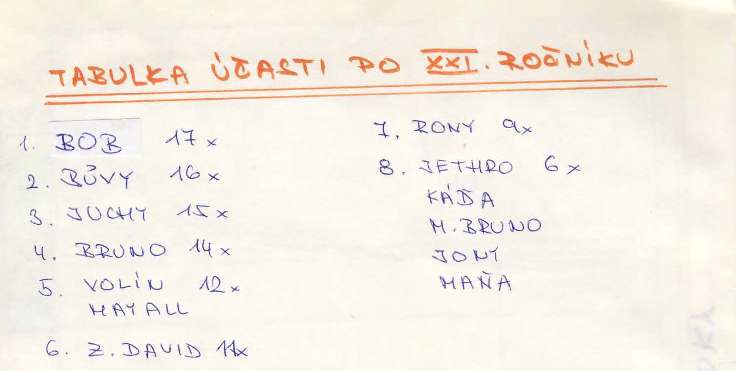 TABULKA ÚČASTI PO XXI. ROČNÍKU
1. BOB 17x
2. BŮVY 16x
3. JUCHY 15x
4. BRUNO 14x
5. VOLÍN 12x
MAYALL
6. Z. DAVID 11x
7. RONY 9x
8. JETHRO 6x
KÁĎA
M. BRUNO
JONY
MAŇA